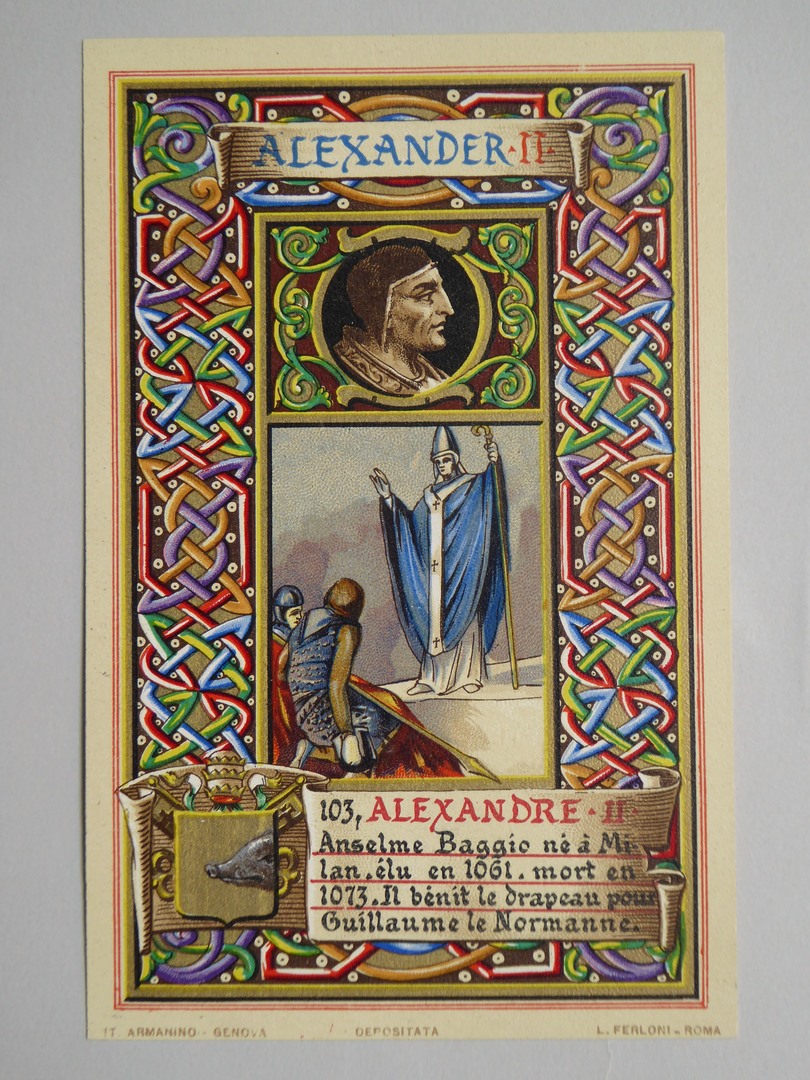 ALEXANDER·II·
103, ALEXANDRE·II·
Anselme Baggio né à Mi-
lan.élu en 1061. mort en
1073. Il bénit le drapeau pour
Guillaume le Normanne.
IT. ARMANINO - GENOVA DEPOSITATA L. FERLONI - ROMA